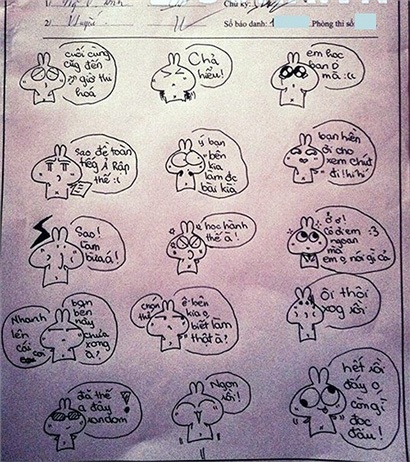 Chữ ký:
2/
Số báo danh: 1
Phòng thi số
cuối cùng
cũg đến
giờ thi
hoá
Chả
hiểu!
em học
ban D
mà :((
sao đề toàn
tiếg Ả Rập
thế :(
ý bạn
bên
kia
làm đc
bài kìa
bạn hiền
ơi cho
xem chút
đi! hí hí
Sao!
làm
bừa á!
học hành
thế à!
ờ ờ!
Cô đi em :3
ngoan
mà
em o nói gì cả
Nhanh
lên
cái
coi
bạn
bên
này
chưa
xong
à?
chọn
thử
ê bên
kia o
biết làm
thật à?
Ôi thôi
xog rồi
đã thế
a đây
random!
Ngon
rồi!
hết rồi
đấy o
còn gì
đọc
đâu!